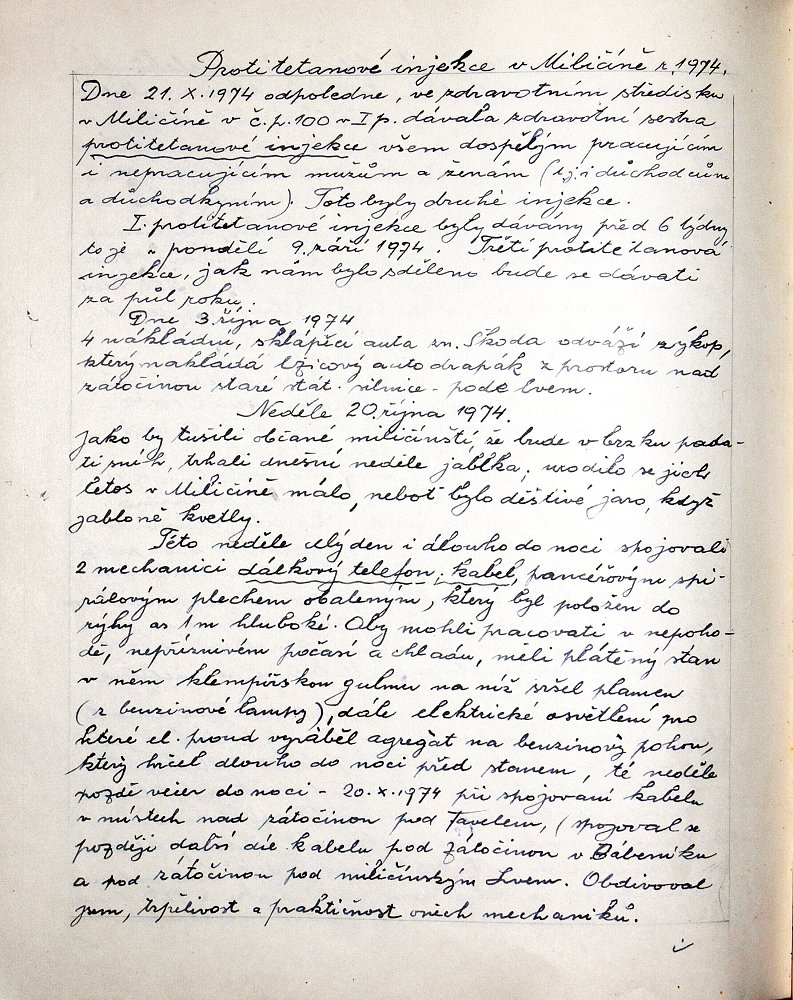 Protitetanové injekce v Miličíně r. 1974.
Dne 21. X. 1974 odpoledne, ve zdravotním středisku
v Miličíně v č. p. 100 v I p. dávala zdravotní sestra
protitetanové injekce všem dospělým pracujícím
i nepracujícím mužům a ženám (t.j. i důchodcům
a důchodkyním). Toto byly druhé injekce.
I. protitetanové injekce byly dávány před 6 týdny
to je v pondělí 9. září 1974. Třetí protitetanová
injekce, jak nám bylo sděleno bude se dávati
za půl roku.
Dne 3. října 1974
4 nákladní, sklápěcí auta zn. Škoda odváží výkop,
který nakládá lžícový autodrapák z prostoru nad
zátočinou staré stát. silnice - pode Lvem.
Neděle 20. října 1974.
Jako by tušili občané miličínští, že bude v brzku pada-
ti sníh, trhali dnešní neděle jablka; urodilo se jich
letos v Miličíně málo, neboť bylo deštivé jaro, když
jabloně kvetly.
Této neděle celý den i dlouho do noci spojovali
2 mechanici dálkový telefon. kabel, pancéřovým spi-
rálovým plechem obaleným, který byl položen do
rýhy as 1 m hluboké. Aby mohli pracovati v nepoho-
dě, nepříznivém počasí a chladu, měli plátěný stan
v něm klempířskou na níž sršel plamen
(z benzinové lampy), dále elektrické osvětlení pro
které el. proud vyráběl agregát na benzinový pohon,
který hrčel dlouho do noci před stanem, té neděle
pozdě večer do noci - 20. X. 1974 při spojovaní kabelu
v místech nad zátočinou pod Tavelem, (spojoval se
později další díl kabelu pod zátočinou v Báberníku
a pod zátočinou pod miličínským Lvem. Obdivoval
jsem, trpělivost a praktičnost oněch mechaniků.